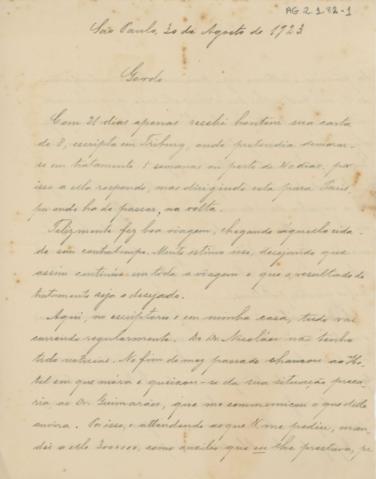 AG.2.1.82-1
São Paulo, 30 de Agosto de 1923
Gordo
Com 21 dias apenas recebi hontem sua carta
de 8, escripta em Friburg, onde pretendia demorar-
se em tratamento 5 semanas ou perto de 40 dias, por
isso a ella respondo, mas dirigindo esta para Paris,
por onde ha de passar, na volta.
Felizmente fez boa viagem, chegando áquella cida-
de sem contratempo. Muito estimo isso, desejando que
assim continúe em toda a viagem e que o resultado do
tratamento seja o desejado.
Aqui, no escriptorio e em minha casa, tudo vai
correndo regularmente. Do Dr. Nicoláo não tenho
tido noticias. No fim do mez passado chamou ao Ho-
tel em que móra e queixou-se da sua situação preca-
ria, ao Dr. Guimarães, que me communicou o que delle
ouvira. Por isso, e attendendo ao que V. me pediu, man-
dei a elle como auxilio que eu lhe prestava,